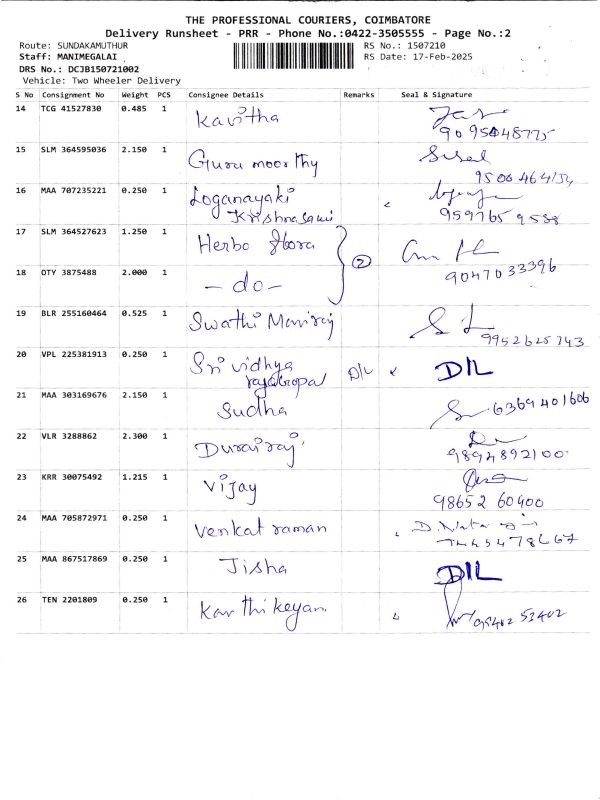 THE PROFESSIONAL COURIERS, COIMBATORE
Delivery Runsheet - PRR - Phone No.:0422-3505555 - Page No.:2
Route: SUNDAKAMUTHUR RS No.: 1507210
Staff: MANIMEGALAI RS Date: 17-Feb-2025
DRS No.: DCJB150721002
Vehicle: Two Wheeler Delivery
S No Consignment No Weight PCS Consignee Details Remarks Seal & Signature
14 TCG 41527830 0.485 1 Kavitha
9095048775
15 SLM 364595036 2.150 1 Guru moorthy
16 MAA 707235221 0.250 1 Loganayaki
Krishnasami 9597659538
17 SLM 364527623 1.250 1 Herbo Stora
②
9047033396
18 OTY 3875488 2.000 1 - do -
19 BLR 255160464 0.525 1 Swathi Maniraj
9952625743
20 VPL 225381913 0.250 1 Sri vidhya D/L D/L
rajagopal
21 MAA 303169676 2.150 1 Sudha 6369401606
22 VLR 3288862 2.300 1 Durairaj
9894892100
23 KRR 30075492 1.215 1 Vijay
98652 60400
24 MAA 705872971 0.250 1 Venkat raman
25 MAA 867517869 0.250 1 Jisha D/L
26 TEN 2201809 0.250 1 Karthikeyan